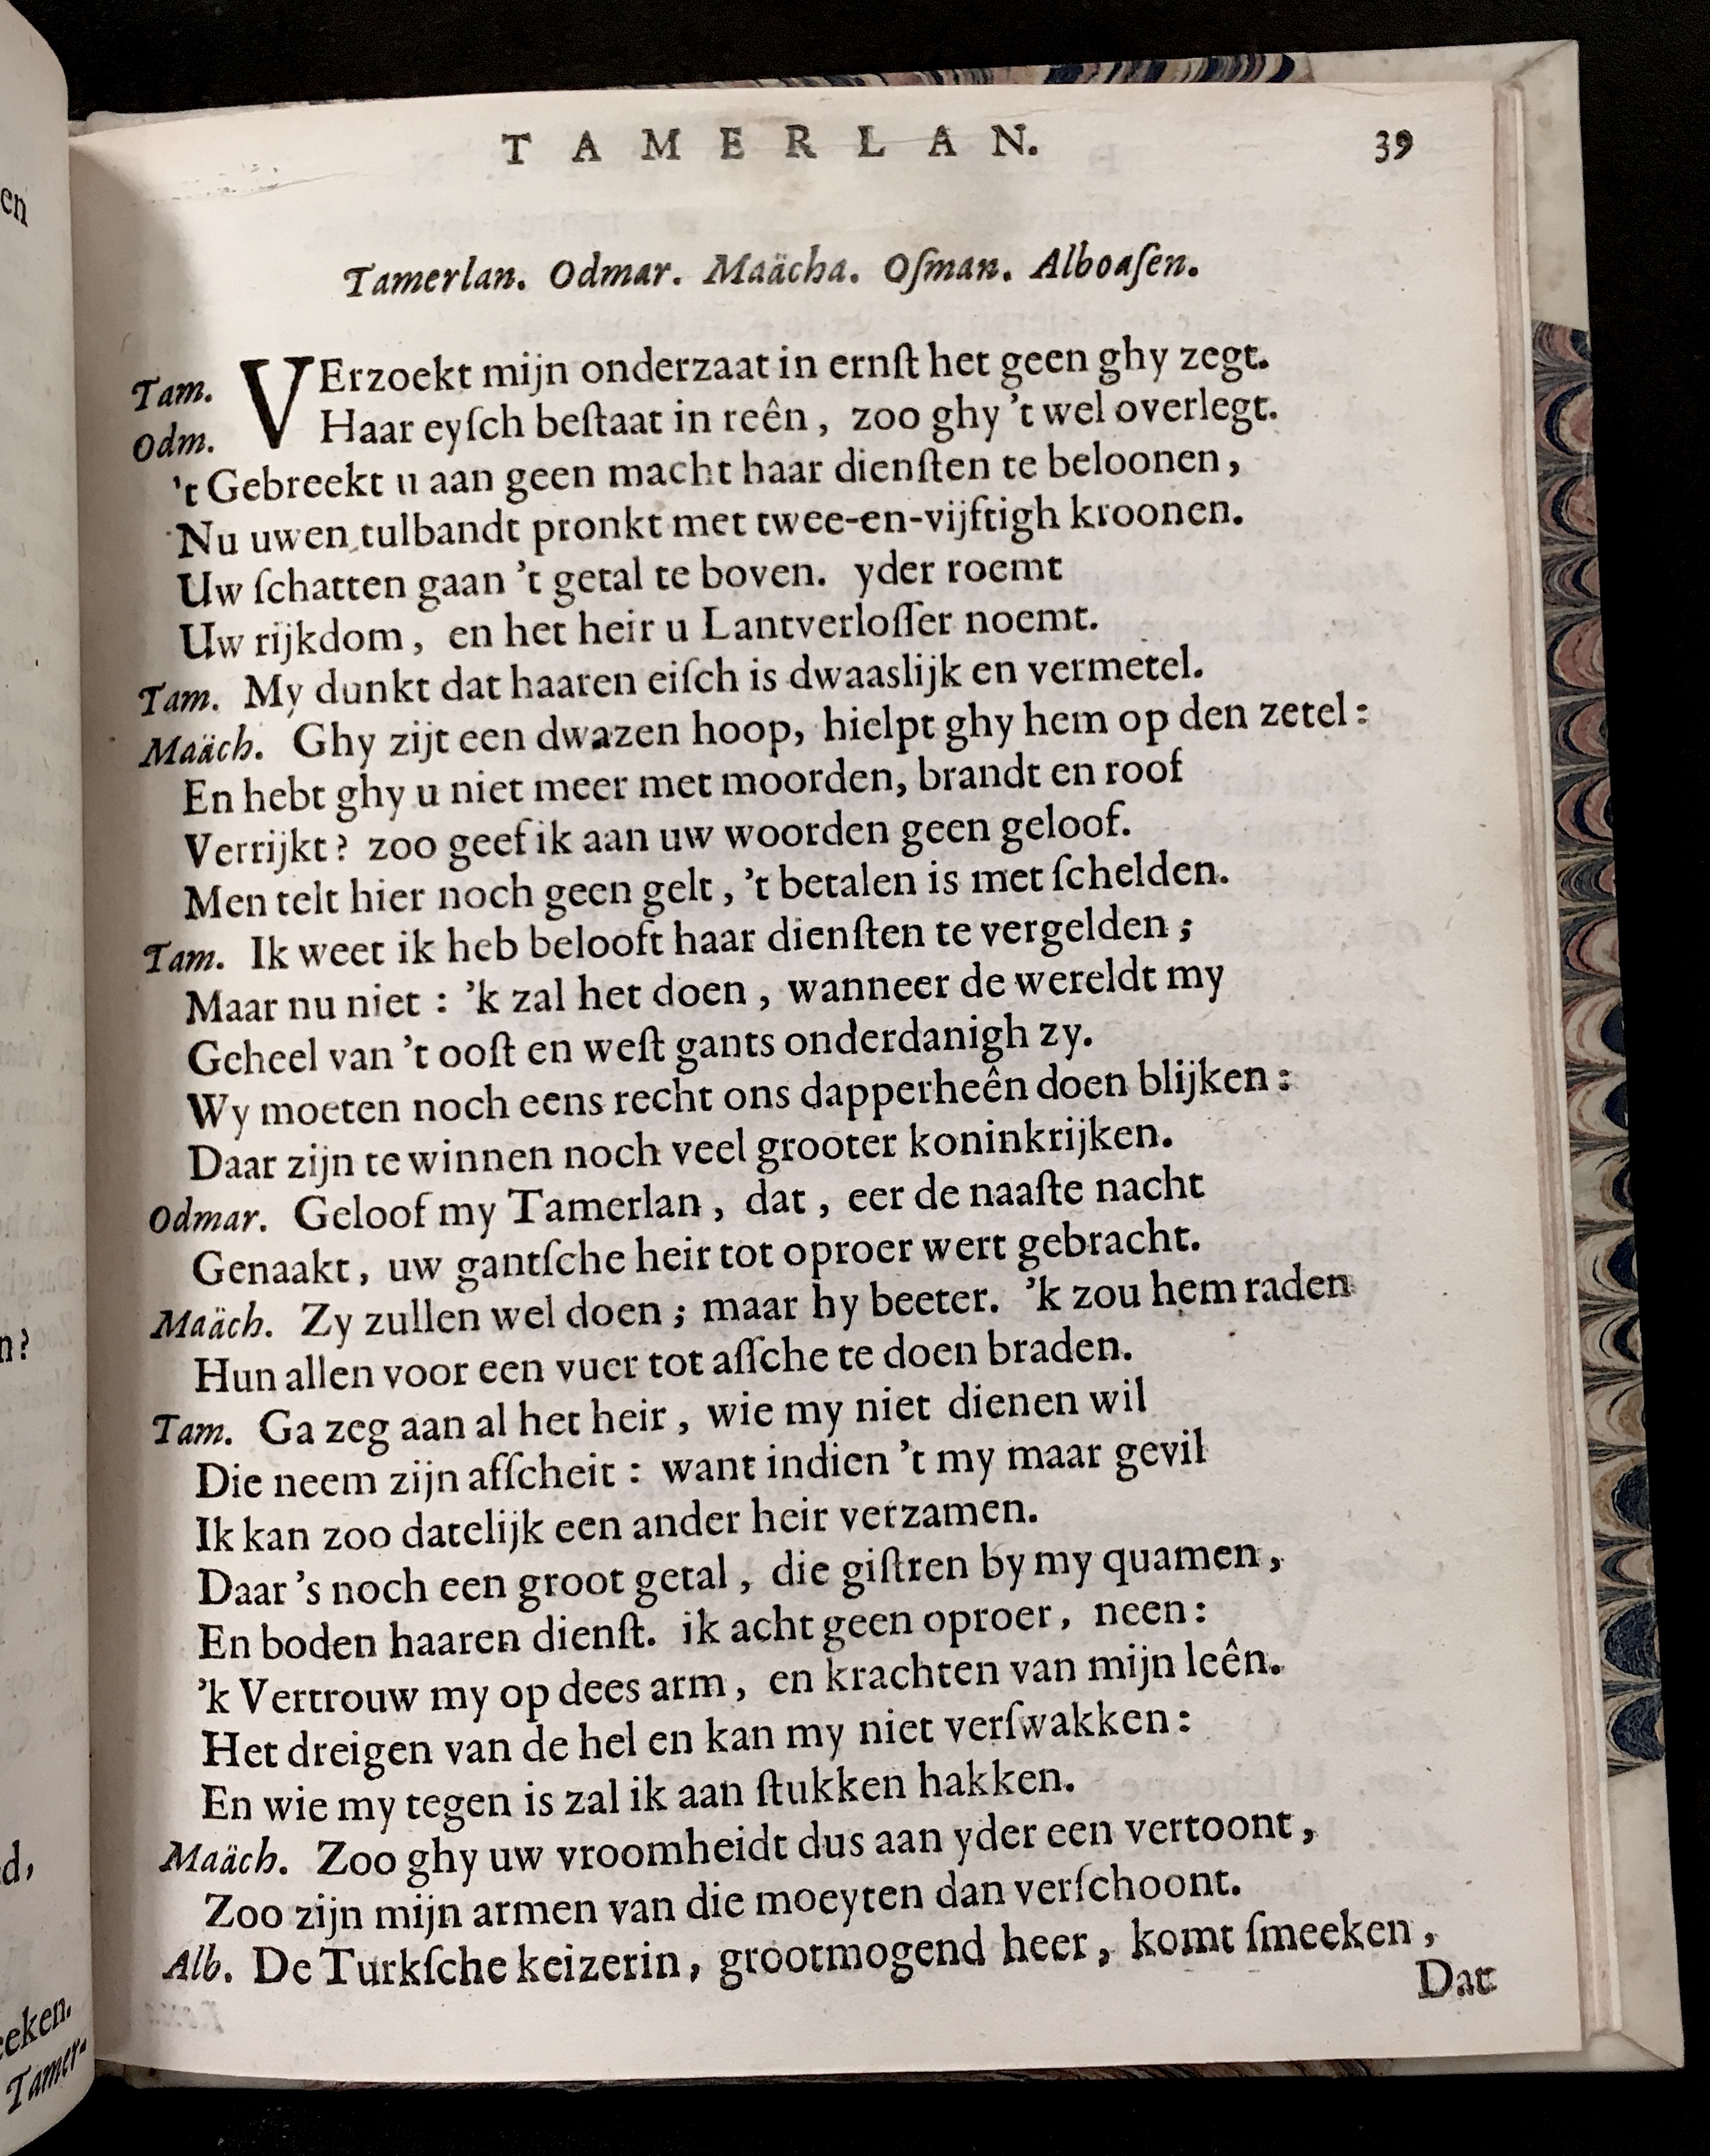 TAMERLAN. 39
Tamerlan. Odmar. Maächa. Oſman. Alboaſen.
Tam. VErzoekt mijn onderzaat in ernſt het geen ghy zegt.
Odm. Haar eyſch beſtaat in reên, zoo ghy 't wel overlegt.
't Gebreekt u aan geen macht haar dienſten te beloonen,
Nu uwen tulbandt pronkt met twee-en-vijftigh kroonen.
Uw ſchatten gaan 't getal te boven. yder roemt
Uw rijkdom, en het heir u Lantverloſſer noemt.
Tam. My dunkt dat haaren eiſch is dwaaslijk en vermetel.
Maäch. Ghy zijt een dwazen hoop, hielpt ghy hem op den zetel:
En hebt ghy u niet meer met moorden, brandt en roof
Verrijkt? zoo geef ik aan uw woorden geen geloof.
Men telt hier noch geen gelt, 't betalen is met ſchelden.
Tam. Ik weet ik heb belooft haar dienſten te vergelden;
Maar nu niet: 'k zal het doen, wanneer de wereldt my
Geheel van 't ooſt en weſt gants onderdanigh zy.
Wy moeten noch eens recht ons dapperheên doen blijken:
Daar zijn te winnen noch veel grooter koninkrijken.
Odmar. Geloof my Tamerlan, dat, eer de naaſte nacht
Genaakt, uw gantſche heir tot oproer wert gebracht.
Maäch. Zy zullen wel doen; maar hy beeter. 'k zou hem raden
Hun allen voor een vuer tot aſſche te doen braden.
Tam. Ga zeg aan al het heir, wie my niet dienen wil
Die neem zijn afſcheit: want indien 't my maar gevil
Ik kan zoo datelijk een ander heir verzamen.
Daar 's noch een groot getal, die giſtren by my quamen,
En boden haaren dienſt. ik acht geen oproer, neen:
'k Vertrouw my op dees arm, en krachten van mijn leên.
Het dreigen van de hel en kan my niet verſwakken:
En wie my tegen is zal ik aan ſtukken hakken.
Maäch. Zoo ghy uw vroomheidt dus aan yder een vertoont,
Zoo zijn mijn armen van die moeyten dan verſchoont.
Alb. De Turkſche keizerin, grootmogend heer, komt ſmeeken,
Dat
en
n?
d,
eeken.
Tamer-